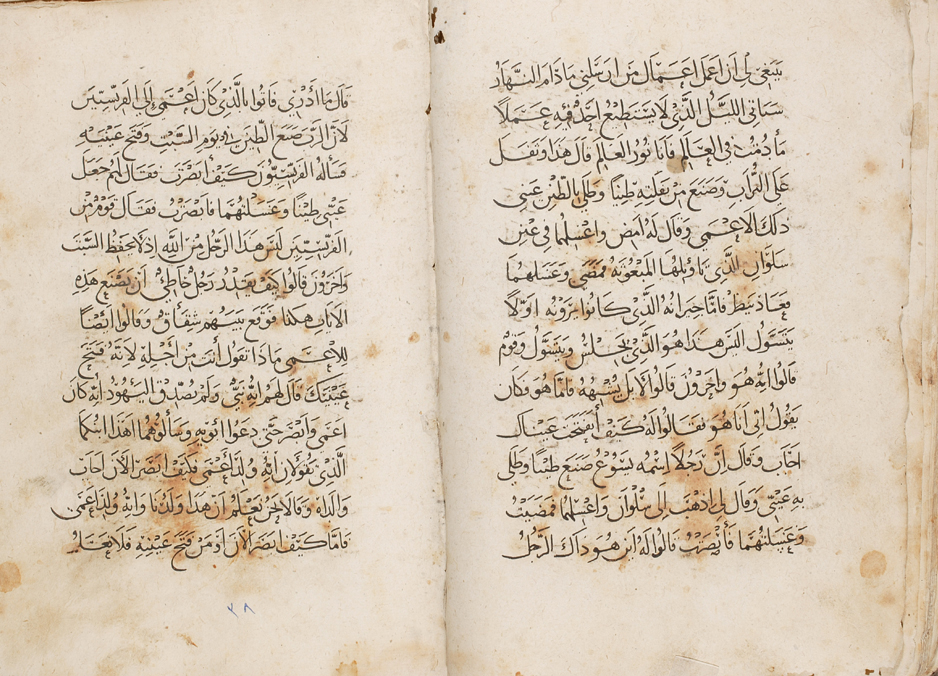 ينبغي لي ان اعمل اعمال من ارسلني ماذام النهار
سياتي الليل الذي لا يستطيع احد فيه عملاً
ما دمت في العالم فانا نور العالم قال هذا وتفل
على التراب وصنع من تفلته طينًا وطلى بالطين عيني
ذلك الاعمى وقال له امض واغسلهما في عين
سلوان الذي تاويلها المبعوثه فمضى وغسلهما
فعاد ينظر فامّا جيرانه الذي كانوا يرونه اولاً
يتسول اليس هذا هو الذي يجلس ويتسول وقوم
قالوا انه هو واخرون قالوا لا بل يشبهه فامّا هو فكان
يقول اني انا هو فقالوا له كيف أنفتحت عيناك
اجاب وقال إنّ رجلاً إسمه يسوع صنع طينًا وطلى
به عينيّ وقال لي اذهب الى سلوان واغسلهما فمضيت
وغسلتهما فأبصرت قالوا له اين هو ذاك الرجل
قال ما أدري فاتوا بالذي كان أعمى إلى الفريسيين
لان الرب صنع الطين في يوم السبت وفتح عينيه
فسأله الفريسيون كيف أبصرت فقال لهم جعل
عينيّ طينًا وغسلتهما فابصرت فقال قوم من
الفريسيين ليس هذا الرجل من الله إذ لا يحفظ السبت
واخرون قالوا كيف يقدر رجل خاطئ أن يصنع هذه
الايات هكذا فوقع بينهم شقاق وقالوا ايضًا
للاعمى ماذا تقول أنت من أجله لانه فتح
عينيك قال لهم إنه نبي ولم يصدق اليهود انه كان
اعمى وابصر حتى دعوا ابويه وسألوهما اهذا ابنكما
الذي تقولان انه ولد أعمى فكيف ابصر الان اجاب
والداه وقالا نحن نعلم أن هذا ولدنا وانه ولد اعمى
فامّا كيف ابصر الان او من فتح عينيه فلا نعلم
٢٨